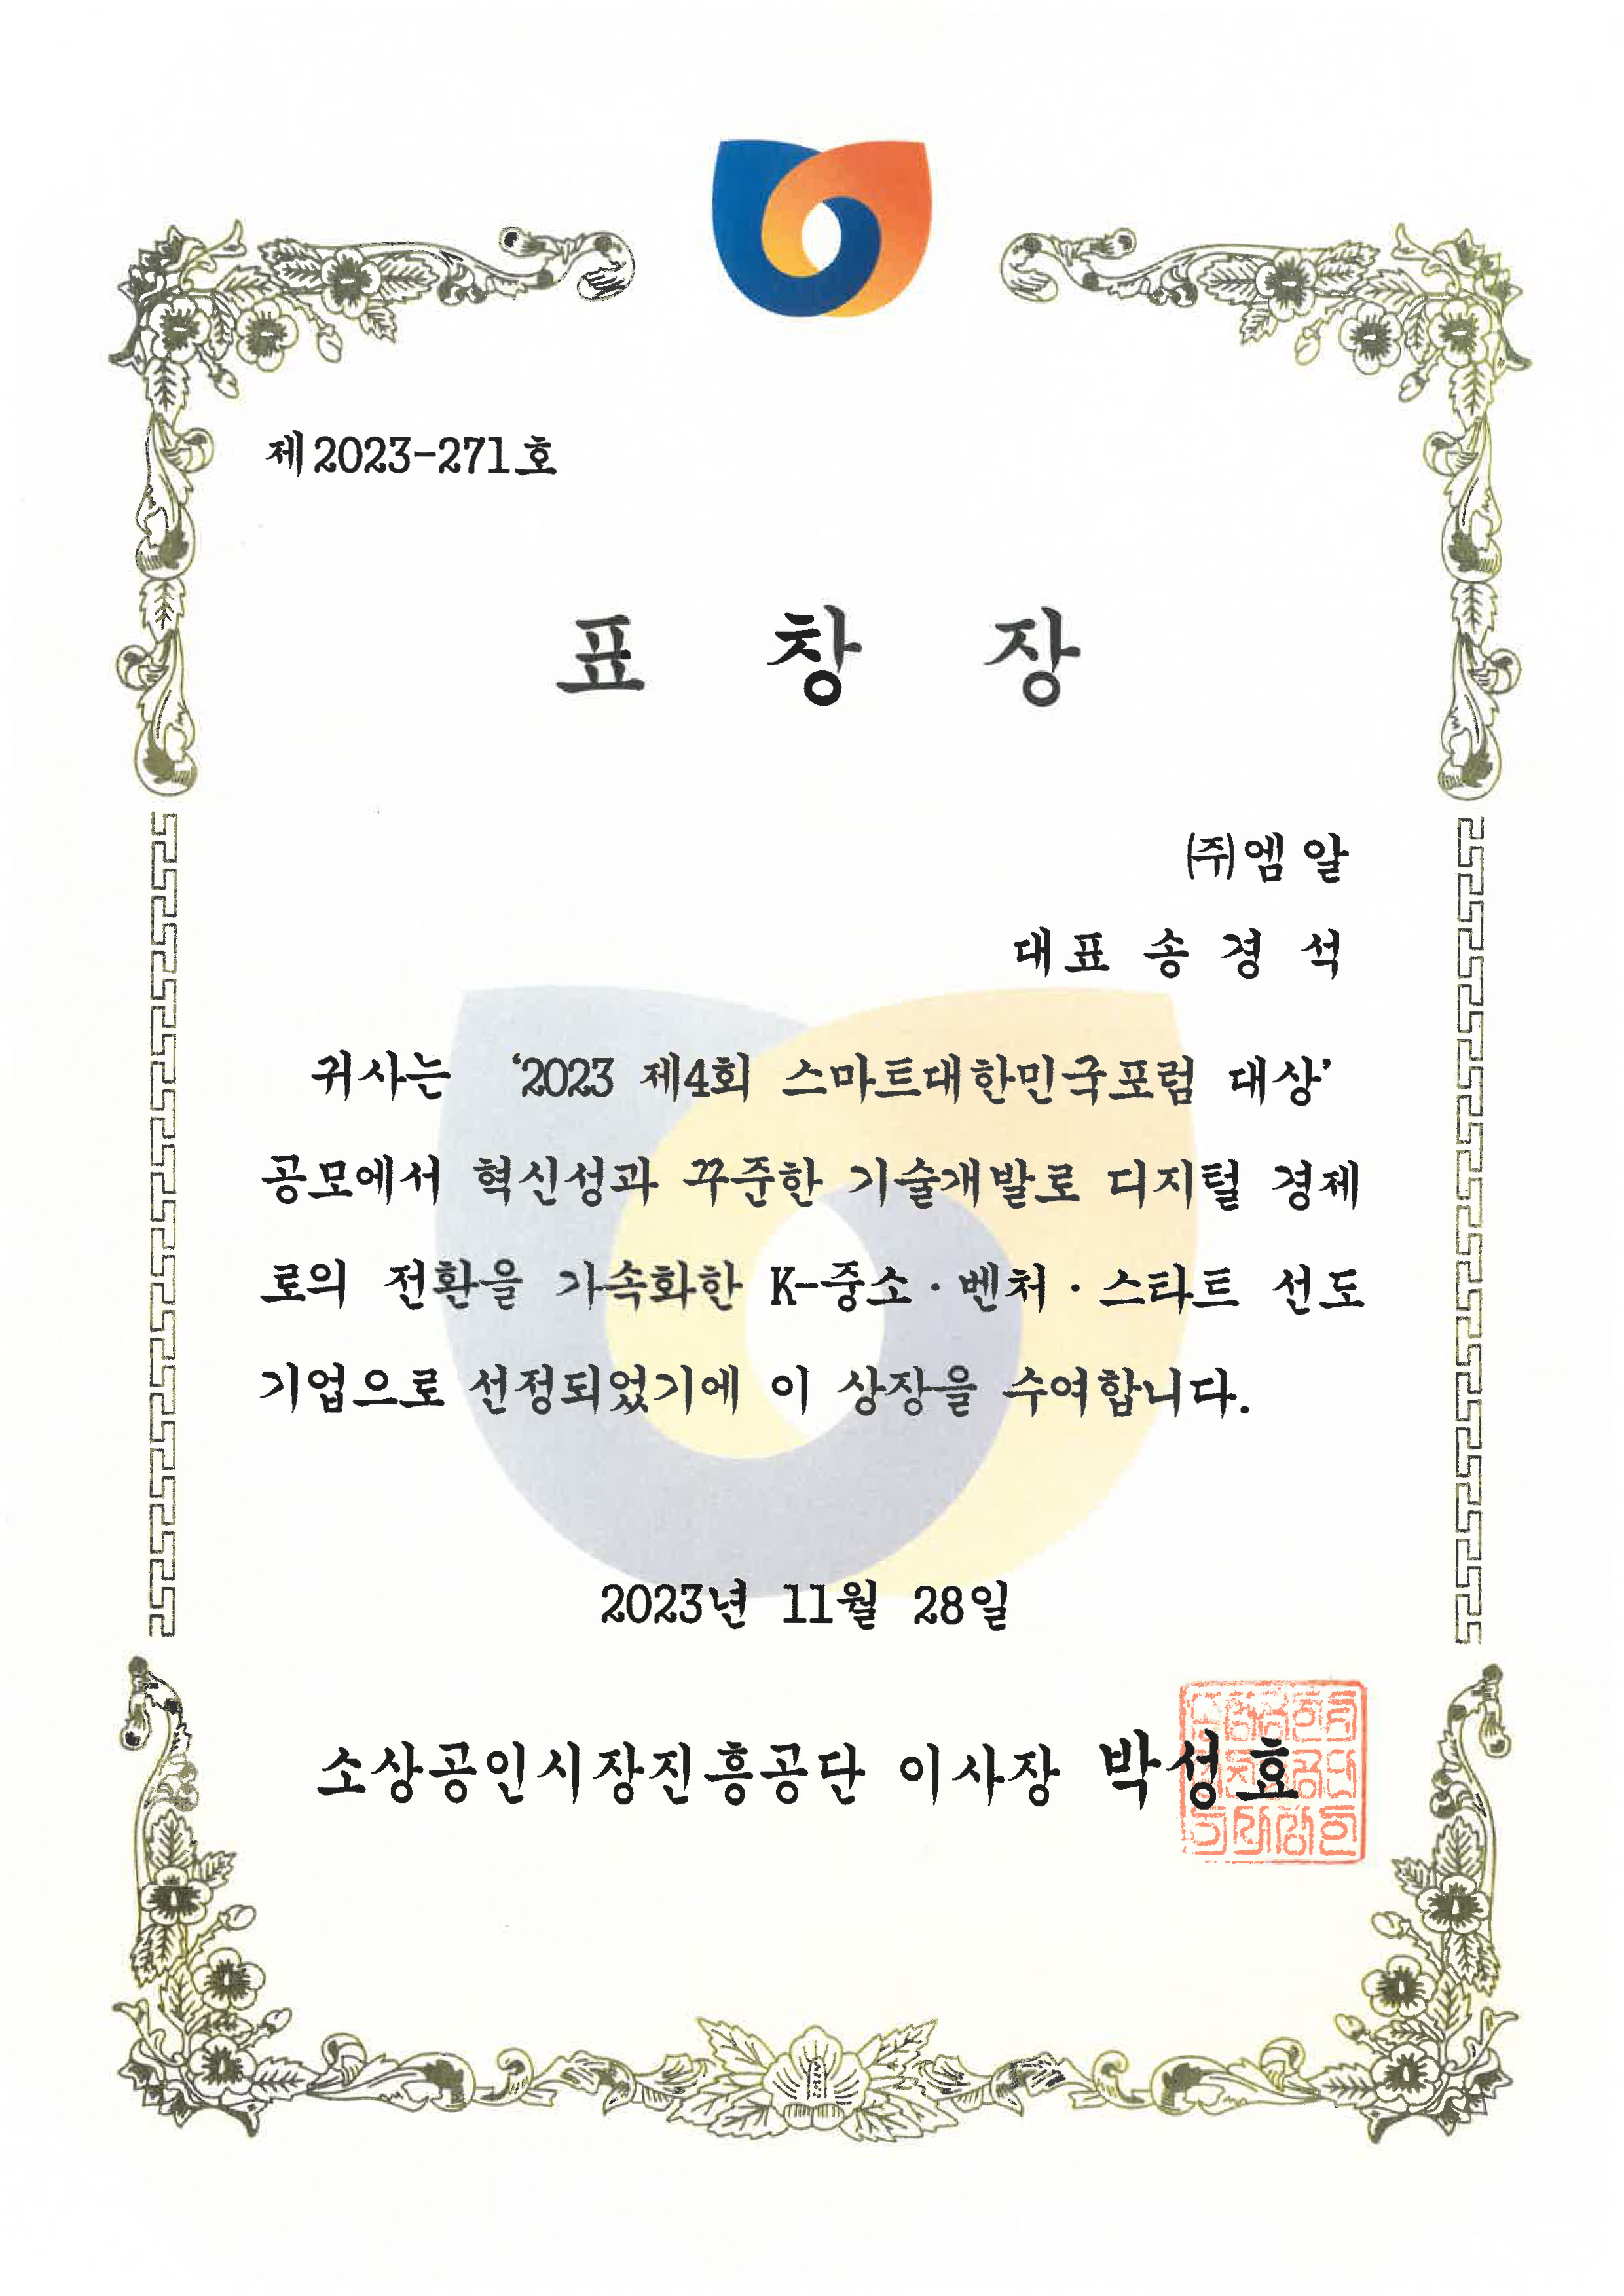 제2023-271호
표 창 장
㈜엠 알
대표 송 경 석
귀사는 '2023 제4회 스마트대한민국포럼 대상'
공모에서 혁신성과 꾸준한 기술개발로 디지털 경제
로의 전환을 가속화한 K-중소·벤처·스타트 선도
기업으로 선정되었기에 이 상장을 수여합니다.
2023년 11월 28일
소상공인시장진흥공단 이사장 박성효